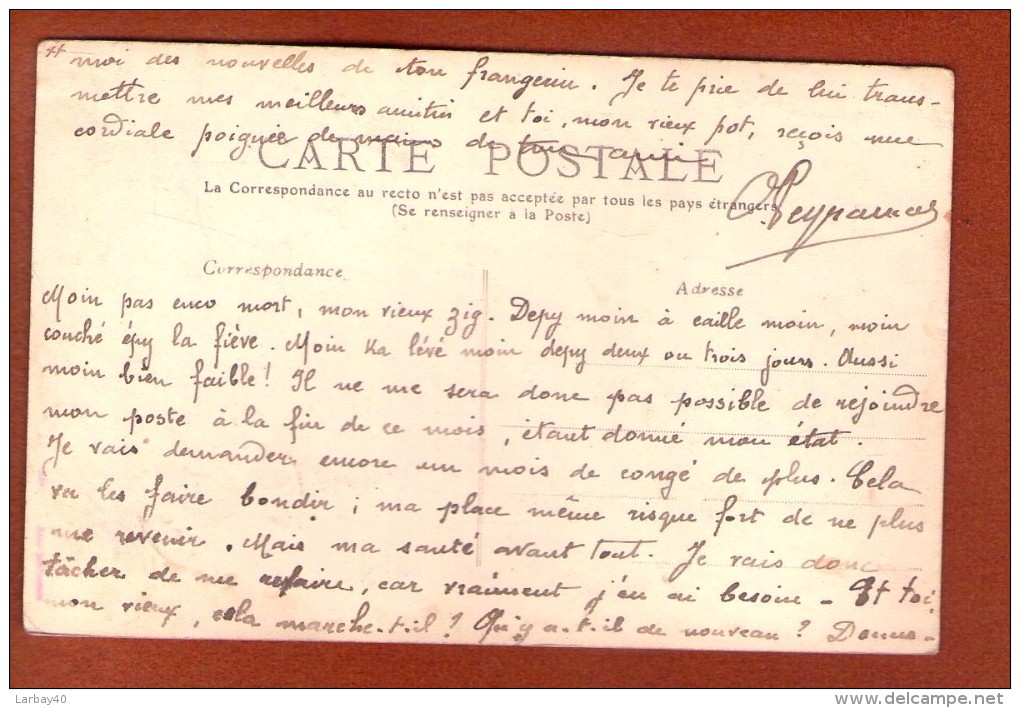 moi des nouvelles de ton frangerin. Je te prie de lui trans-
mettre mes meilleurs amitiés et toi, mon vieux pot, reçois une
cordiale poignée de mains de ton ami
CARTE POSTALE
La Correspondance au recto n'est pas acceptée par tous les pays étrangers
(Se renseigner à la Poste)
Correspondance
Adresse
Moin pas enco mort, mon vieux zig. Depy moin à caille moin, moin
couché épy la fiève. Moin ka lévé moin depy deux ou trois jours. Aussi
moin bien faible! Il ne me sera donc pas possible de rejoindre
mon poste à la fin de ce mois, étant donné mon état.
Je vais demander encore un mois de congé de plus. Cela
va les faire bondir; ma place même risque fort de ne plus
me revenir. Mais ma santé avant tout. Je vais donc
tâcher de me refaire, car vraiment j'en ai besoin - Et toi
mon vieux, cela marche-t-il? Qu'y a-t-il de nouveau? Donne-
Larbay40
www.delcampe.net